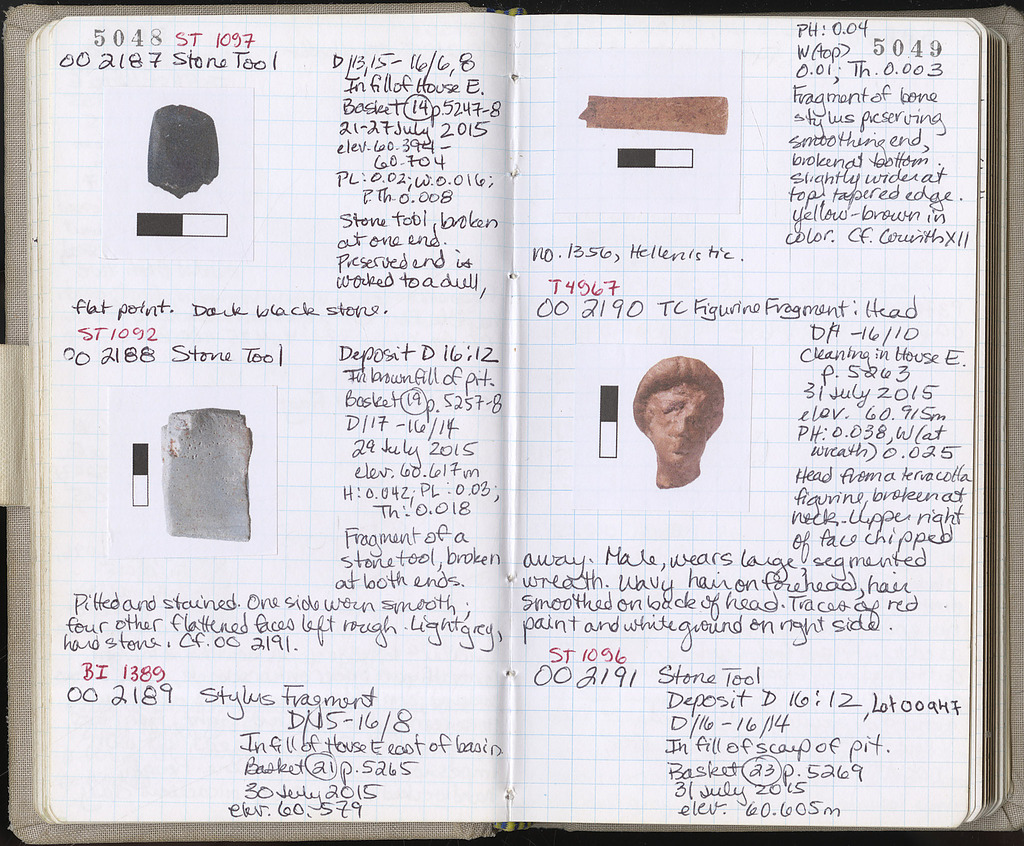 5048 ST 1097
OO 2187 Stone Tool
D/13,15-16/6,8
In fill of House E.
Basket 14 p.5247-8
21-27 July 2015
elev. 60.394-
60.704
PL: 0.02; W. 0.016;
P.Th. 0.008
Stone tool, broken
at one end.
Preserved end is
worked to a dull,
flat point. Dark black stone.
ST 1092
OO 2188 Stone Tool
Deposit D 16:12
In brown fill of pit.
Basket 19 p. 5257-8
D/17-16/14
29 July 2015
elev. 60.617m
H: 0.042; PL: 0.03;
Th: 0.018
Fragment of a
stone tool, broken
at both ends.
Pitted and stained. One side worn smooth;
four other flattened faces left rough. Light grey,
hard stone. Cf. OO 2191.
BI 1389
OO 2189 Stylus Fragment
D/15-16/8
In fill of House E east of basin.
Basket 21 p. 5265
30 July 2015
elev. 60.579
5049
PH: 0.04
W(top)
0.01; Th. 0.003
Fragment of bone
stylus preserving
smoothing end,
broken at bottom.
Slightly wider at
top, tapered edge.
Yellow-brown in
color. Cf. Corinth XII
no. 1356, Hellenistic.
T4967
OO 2190 TC Figurine Fragment: Head
-16/10
Cleaning in House E.
p. 5263
31 July 2015
elev. 60.915m
PH: 0.038, W(at
wreath) 0.025
Head from a terracotta
figurine, broken at
neck. Upper right
of face chipped
away. Male, wears large, segmented
wreath. Wavy hair on forehead, hair
smoothed on back of head. Traces of red
paint and white ground on right side.
ST 1096
OO 2191 Stone Tool
Deposit D 16:12, Lot OO947
D/16-16/14
In fill of scarp of pit.
Basket 23 p. 5269
31 July 2015
elev. 60.605m